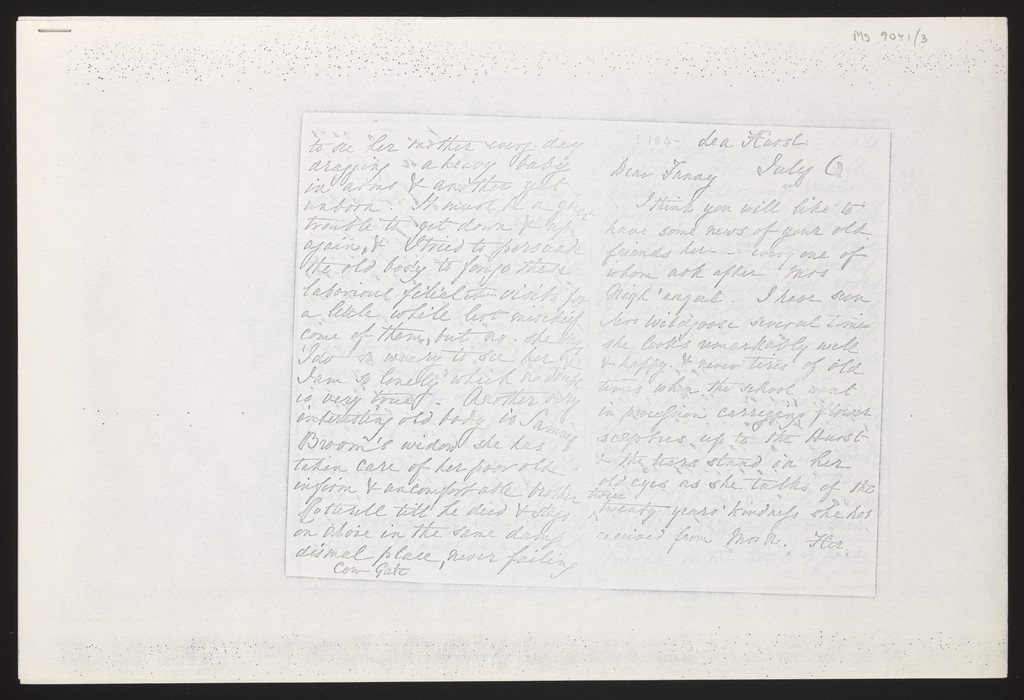 Ms 9041/3
Lea Hurst
July 6
Dear Fanny
I think you will like to
have some news of your old
friends here - every one of
whom ask after Mrs
Nigh'engale. I have seen
Mrs Wildgoose several times
she looks remarkably well
& happy & never tires of old
times when the school went
in procession carrying flower
sceptres up to the Hurst
& the tears stand in her
old eyes as she talks of the
twice
twenty years' kindness she has
received from Mrs N. Her
to see her mother every day
dragging a heavy baby
in arms & another yet
unborn. It must be a great
trouble to get down & up
again, & I tried to persuade
the old body to forgo these
laborious filial visits for
a little while lest mischief
come of them, but no. she says
I do so weary to see her &
I am so lonely which no doubt
is very true. Another very
interesting old body is Sammy
Broom's widow she has
taken care of her poor old
infirm & uncomfortable brother
till he died & stays
on alone in the same damp
dismal place, never failing
Cow Gate